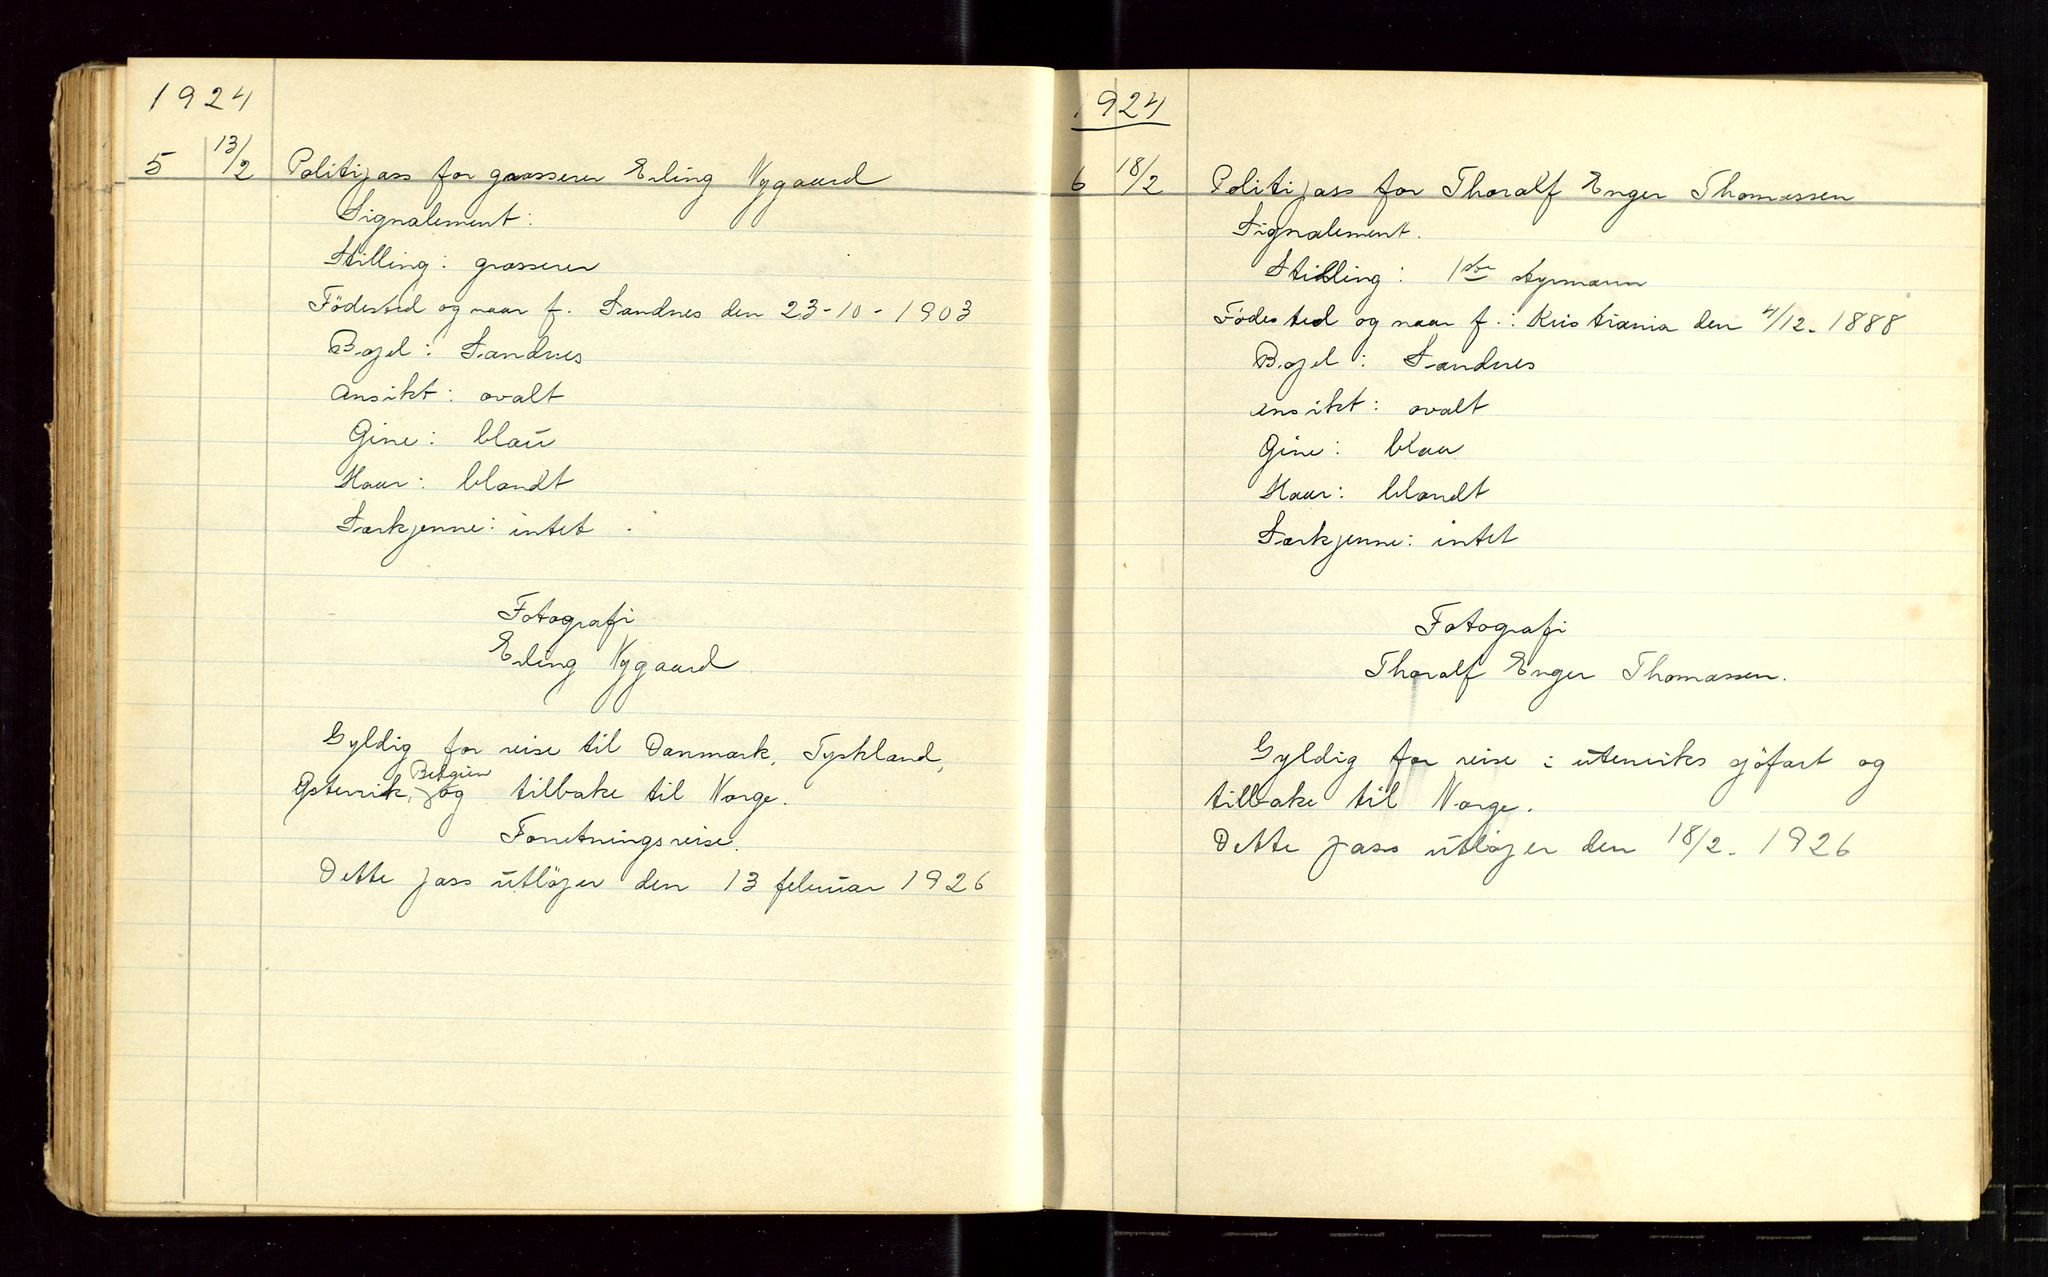 1924
5 13/2 Politipass for grosserer Erling Nygaard
Signalement:
Stilling: grosserer
Födested og naar f. Sandnes den 23-10-1903
Bopel: Sandnes
Ansikt: ovalt
Öine: blaa
Haar: blondt
Særkjenne: intet
Fotografi
Erling Nygaard
Gyldig for reise til Danmark, Tyskland,
Belgien
Østerrik, og tilbake til Norge.
Forretningsreise.
Dette pass utløper den 13 februar 1926
1924
6 18/2 Politipass for Thoralf Enger Thomassen
Signalement.
Stilling: 1ste styrmann
Födested og naar f.: Kristiania den 4/12-1888
Bopel: Sandnes
Ansikt: ovalt
Öine: blaa
Haar: blondt
Særkjenne: intet
Fotografi
Thoralf Enger Thomassen.
Gyldig for reise i utenriks sjöfart og
tilbake til Norge.
Dette pass utløper den 18/2-1926